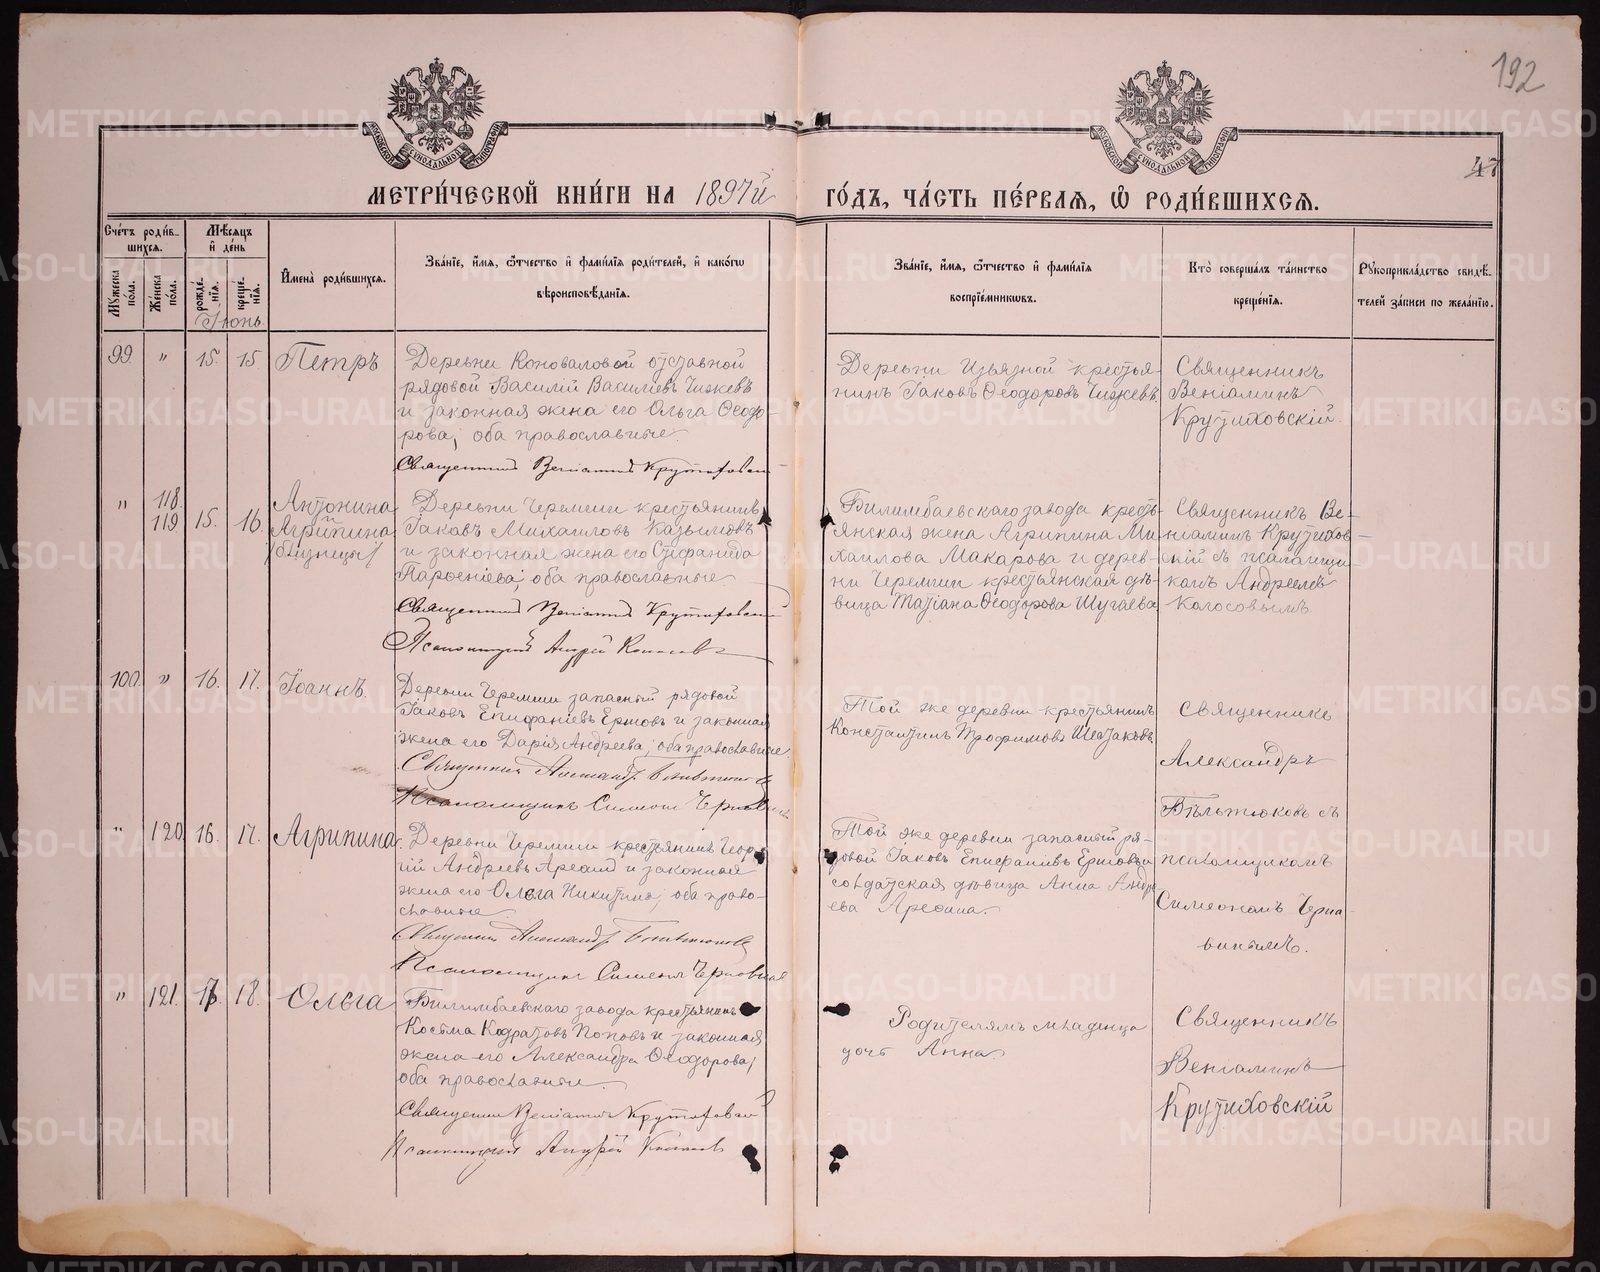 192
47
МЕТРИ́ЧЕСКОЙ КНИ́ГИ НА 1897й ГО́ДЪ, ЧА́СТЬ ПЕ́РВАѦ, Ѽ РОДИ́ВШИХСѦ.
Сче́тъ роди́в-
шихсѧ.
Мѣ́сѧцъ
и҆ де́нь
Мꙋ́жеска по́ла.
Же́нска по́ла.
рожде́-нїѧ.
креще́-нїѧ.
И҆мена̀ роди́вшихсѧ.
Зва́нїе, и҆́мѧ, ѻ҆́тчество и҆ фами́лїѧ роди́телей, и҆ како́гѡ
вѣроисповѣ́данїѧ.
Зва́нїе, и҆́мѧ, ѻ҆́тчество и҆ фами́лїѧ
воспрїе́мникѡвъ.
Кто̀ соверша́лъ та́инство
креще́нїѧ.
Рꙋкоприкла́дство свидѣ́-
телей за́писи по жела́нїю.
Іюнь.
99 " 15. 15 Петръ
Деревни Коноваловой отставной
рядовой Василій Василіевъ Чижевъ
и законная жена его Ольга Ѳеодо-
рова, оба православные.
Священникъ Веніаминъ Крутиховскій
Деревни Извязной крестья-
нинъ Іаковъ Ѳеодоровъ Чижевъ
Священникъ
Веніаминъ
Крутиховскій.
" 118. 119 15. 16.
Антонина
и
Агрипина
/близнецы/
Деревни Черемши крестьянинъ
Іаковъ Михаиловъ Казымовъ
и законная жена его Стефанида
Парѳеніева, оба православные
Священникъ Веніаминъ Крутиховскій
Псаломщикъ Андрей Колосовъ
Билимбаевскаго завода кресть-
янская жена Агрипина Ми-
хаилова Макарова и дерев-
ни Черемши крестьянская дѣ-
вица Татіана Ѳеодорова Шугаева
Священникъ Ве-
ніаминъ Крутихов-
скій съ псаломщи-
комъ Андреемъ
Колосовымъ
100. " 16. 17. Іоаннъ.
Деревни Черемши запасный рядовой
Іаковъ Епифаніевъ Ершовъ и законная
жена его Дарія Андреева, оба православные.
Священникъ Александръ Бѣльтюковъ
Псаломщикъ Симеонъ Чернавинъ
Той же деревни крестьянинъ
Константинъ Трофимовъ Шестаковъ
Священникъ
Александръ
Бѣльтюковъ съ
псаломщикомъ
Симеономъ Черна-
винымъ.
" 120 16. 17. Агрипина
Деревни Черемши крестьянинъ Геор-
гій Андреевъ и законная
жена его Ольга Никитина, оба право-
славные.
Священникъ Александръ Бѣльтюковъ
Псаломщикъ Симеонъ Чернавинъ
Той же деревни запасный ря-
довой Іаковъ Епифаніевъ Ершовъ и
солдатская дѣвица Анна Андре-
ева
" 121. 17 18. Ольга
Билимбаевскаго завода крестьянинъ
Косьма Кодратовъ Поповъ и законная
жена его Александра Ѳеодорова,
оба православные.
Священникъ Веніаминъ Крутиховскій
Псаломщикъ Андрей Колосовъ
Родителямъ младенца
дочь Анна
Священникъ
Веніаминъ
Крутиховскій